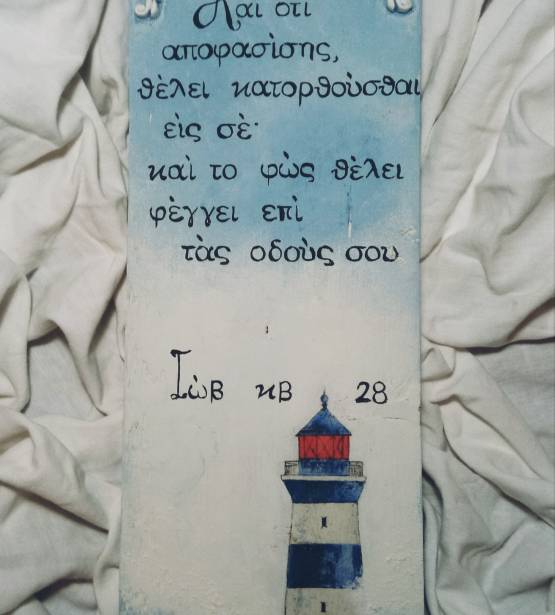 Και ότι
αποφασίσης,
θὲλει κατορθοὺσθαι
εὶς σὲ·
καὶ το φὼς θὲλει
φὲγγει επὶ
τὰς οδοὺς σου
Ἰὼβ κβ 28